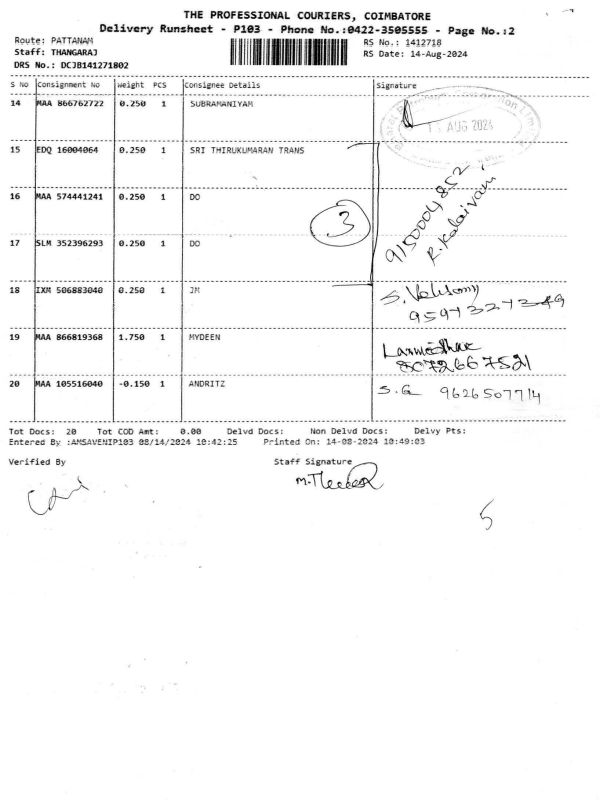 THE PROFESSIONAL COURIERS, COIMBATORE
Delivery Runsheet - P103 - Phone No.:0422-3505555 - Page No.:2
Route: PATTANAM RS No.: 1412718
Staff: THANGARAJ RS Date: 14-Aug-2024
DRS No.: DCJB141271802
S No Consignment No Weight PCS Consignee Details Signature
14 MAA 866762722 0.250 1 SUBRAMANIYAM
AUG 2024
15 EDQ 16004064 0.250 1 SRI THIRUKUMARAN TRANS
16 MAA 574441241 0.250 1 DO
3 9150004852
R. Kalaivani
17 SLM 352396293 0.250 1 DO
18 IXM 506883040 0.250 1 JM
9597327349
19 MAA 866819368 1.750 1 MYDEEN
8072667521
20 MAA 105516040 -0.150 1 ANDRITZ S.G 9626507714
Tot Docs: 20 Tot COD Amt: 0.00 Delvd Docs: Non Delvd Docs: Delvy Pts:
Entered By :AMSAVENIP103 08/14/2024 10:42:25 Printed On: 14-08-2024 10:49:03
Verified By Staff Signature
5